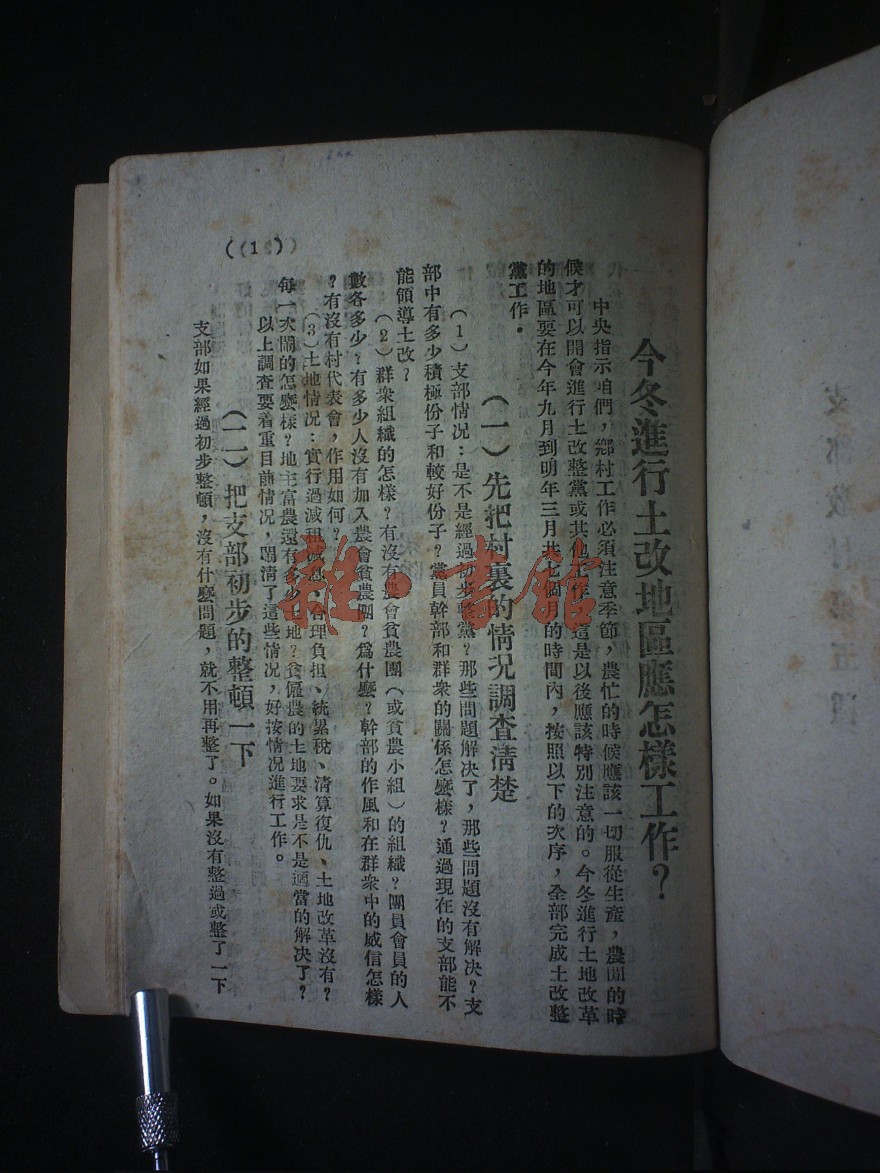 今冬進行土改地區應怎樣工作？
中央指示咱們，鄉村工作必須注意季節，農忙的時候應該一切服從生產，農閒的時
候才可以開會進行土改整黨或其他工作，這是以後應該特別注意的。今冬進行土地改革
的地區要在今年九月到明年三月共七個月的時間內，按照以下的次序，全部完成土改整
黨工作．
（一）先把村裏的情况調查清楚
（1）支部情况：是不是經過初步整黨？那些問題解决了，那些問題沒有解决？支
部中有多少積極份子和較好份子？黨員幹部和群衆的關係怎麽樣？通過現在的支部能不
能領導土改？
（2）群衆組織的怎樣？有沒有農會貧農團（或貧農小組）的組織？團員會員的人
數各多少？有多少人沒有加入農會貧農團？爲什麽？幹部的作風和在群衆中的威信怎樣
？有沒有村代表會，作用如何？
（3）土地情况：實行過减租减息、合理負担、統累稅、清算復仇、土地改革沒有？
每一次鬧的怎麽樣？地主富農還有多少土地？貧僱農的土地要求是不是適當的解决了？
以上調查要着重目前情况，鬧清了這些情况，好按情况進行工作。
（二）把支部初步的整頓一下
支部如果經過初步整頓，沒有什麽問題，就不用再整了。如果沒有整過或整了一下
（1）
雜·書館
支部教材第五課